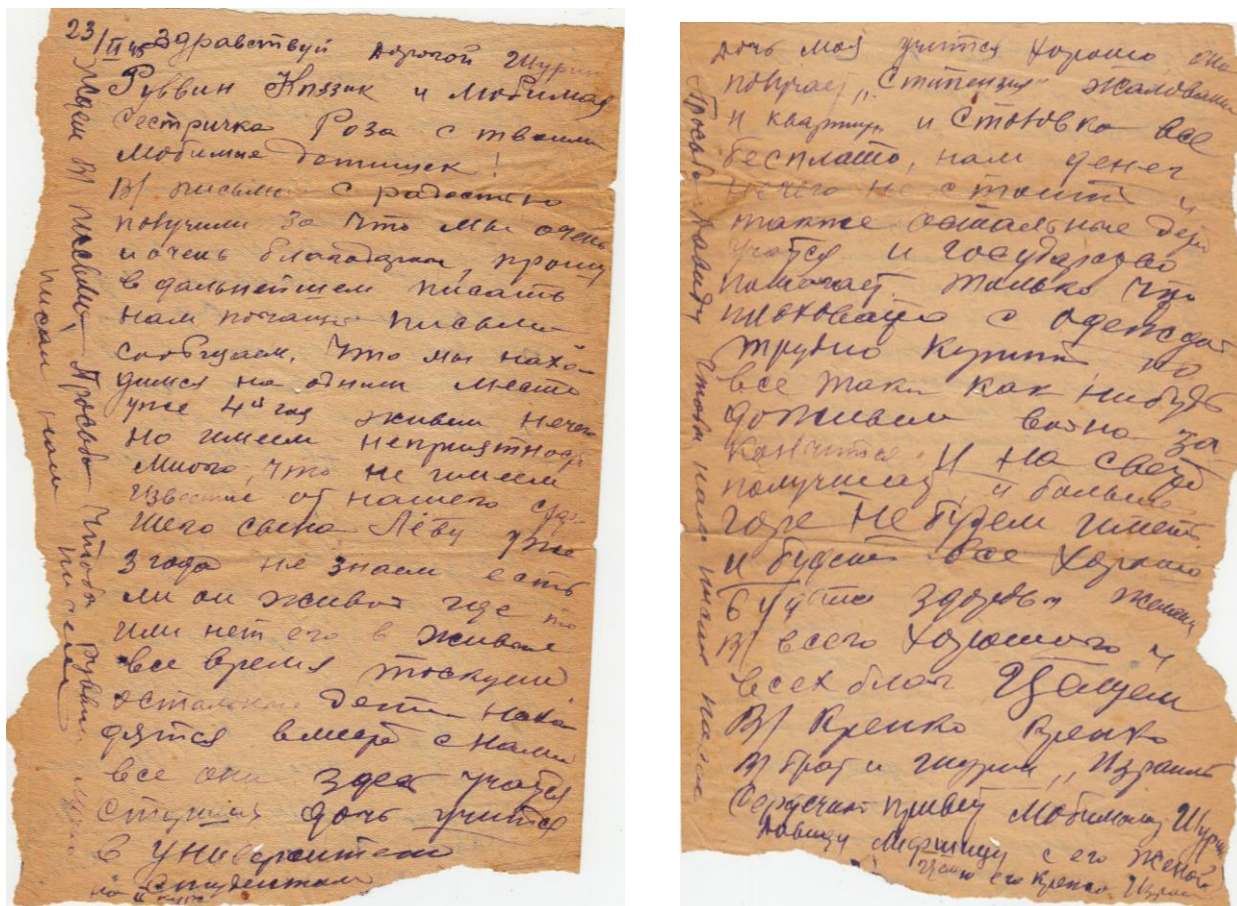 23/II 45 Здравствуй дорогой Шурин
Руввин Князик и любимая
сестричка Роза с твоими
любимые детишек!
В/ письмо с радостью
получили за что мы очень
и очень благодарны, прошу
в дальнейшем писать
нам почаще письма
сообщаем, что мы нахо-
димся на одним месте
уже 4й год живем нечего
но имеем неприятност
много, что не имеем
известие от нашего стар-
шего сына Лёву уже
3 года не знаем есть
ли он живой где то
или нет его в живые
все время тоскуем
остальные дети нахо
дятся вместе с нами
все они здес учатся
старшая дочь учится
в университете
на II курс студентам
Ждем В/ письмо Просьба чтобы Руввин
писал нам письма
дочь моя учится хорошо, она
получает „Стипендия жалования
и квартиру и Столовка все
бесплатно, нам денег
нечего не стоит и
также остальные дети
учатся и государство
помогает только что
плоховато с одеждой
трудно купить, но
все таки как нибудь
доживем война за
канчится. И на свобо
получшает, и больше
горе не будем иметь
и будет все хорошо
будьте здоровы желаем
В/ всего хорошого и
всех благ Целуем
В/ Крепко Крепко
В/ брат и шурин „Израиль
Сердечный привет любимому Шурин
Давиду Лифшицу с его женой
Целую его крепко Израил
Просьба Давиду чтобы нам писал письма